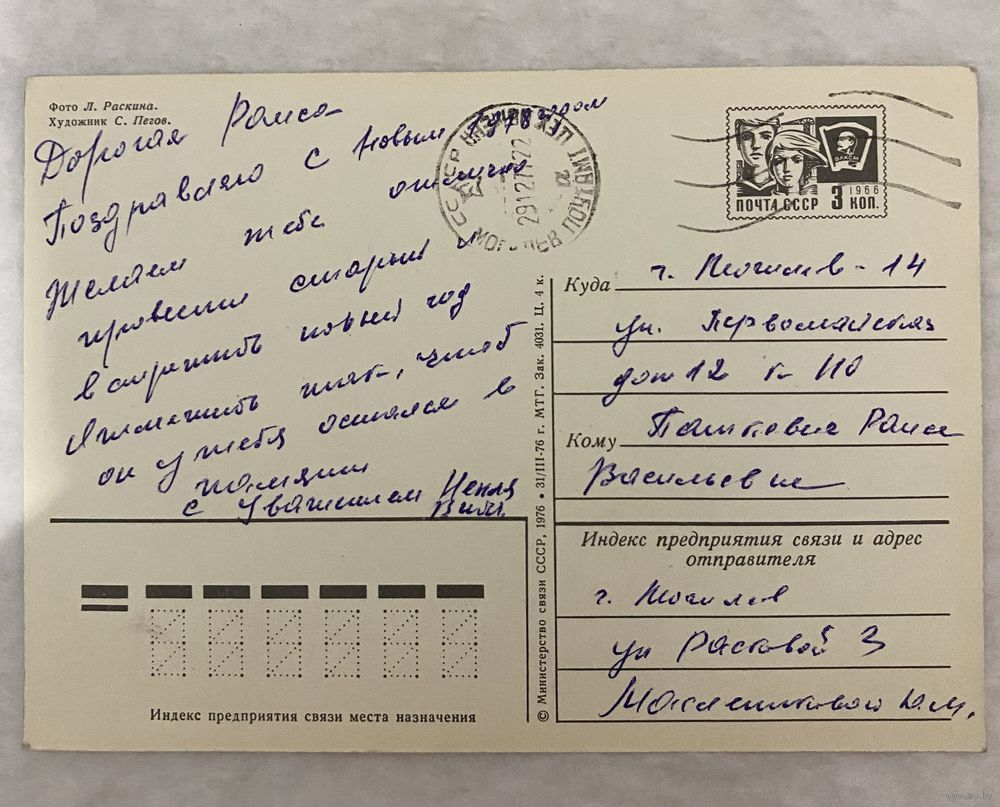 Фото Л. Раскина.
Художник С. Пегов.
Дорогая Раиса
Поздравляю с Новым 1978 годом
Желаем тебе отлично
провести старый и
встретить новый год
так, чтоб
он у тебя остался в
памяти
с уважением
СССР
МОГИЛЕВ ПОЧТАМТ
291277 22
ВЛКСМ
1966
ПОЧТА СССР 3 КОП.
Куда г. Могилев - 14
ул. Первомайская
дом 12 к- 110
Кому Пашкевич Раисе
Васильевне
Индекс предприятия связи и адрес
отправителя
г. Могилев
ул Расковой 3
Ю.М.
Индекс предприятия связи места назначения
© Министерство связи СССР, 1976 • 31/III-76 г. МТГ. Зак. 4031. Ц. 4 к.
www.ay.by